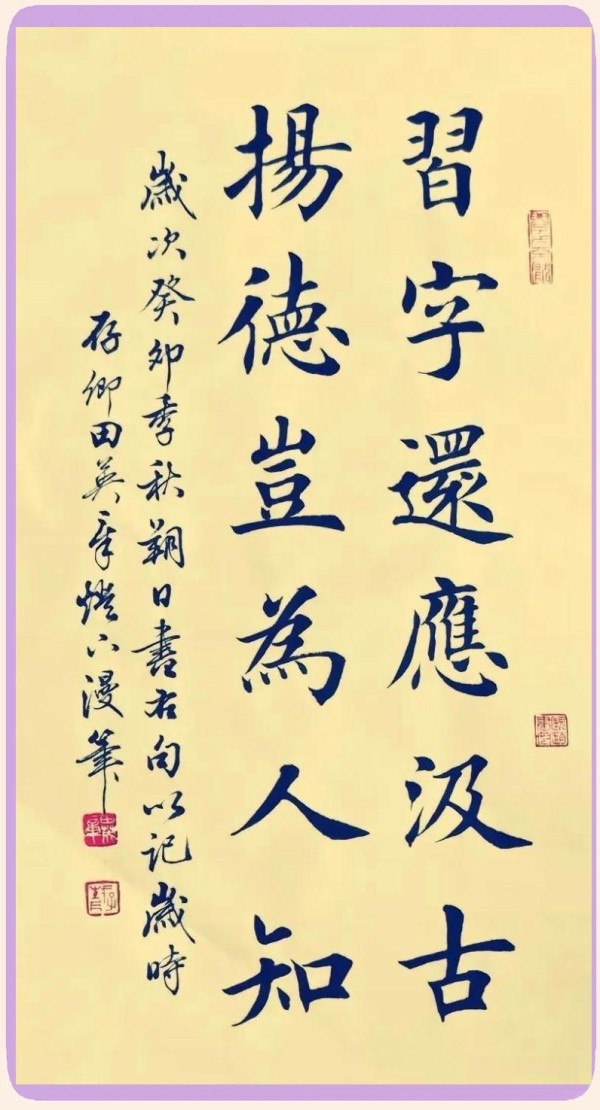 習字還應汲古
揚德豈為人知
歲次癸卯季秋朔日書右句以記歲時
存卿田英章燈下漫筆